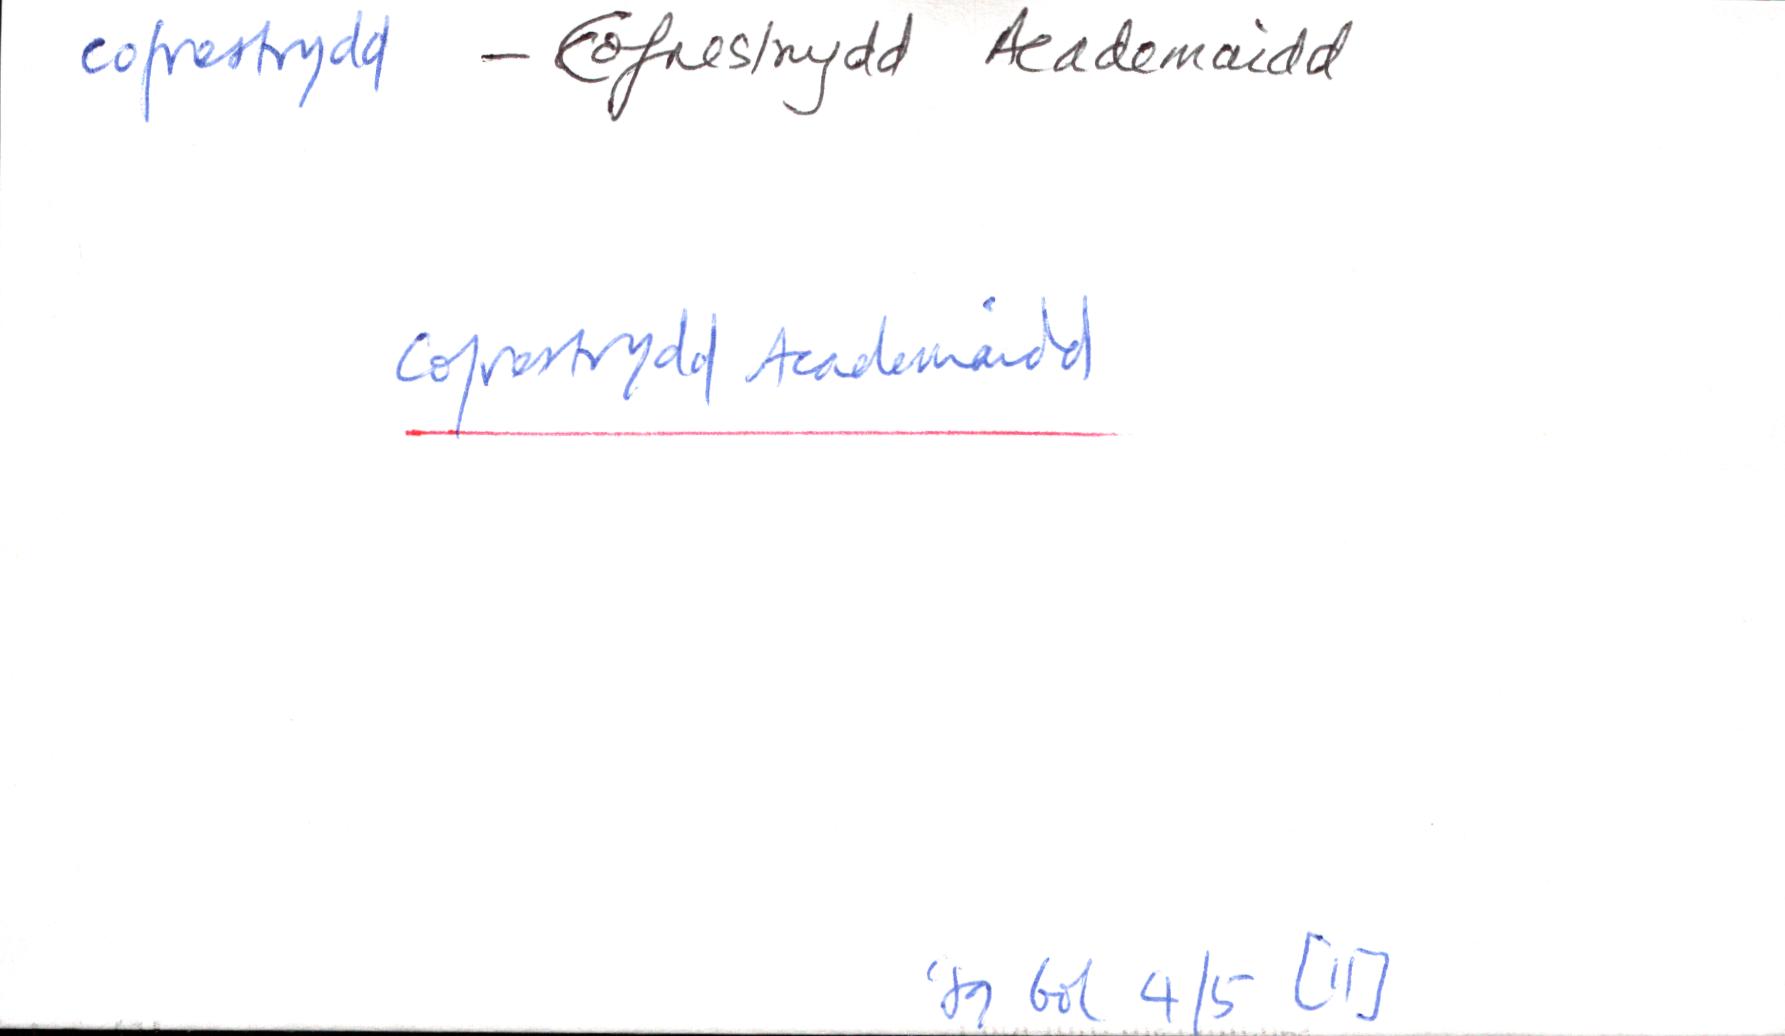 cofrestrydd – Cofrestrydd Academaidd
Cofrestrydd Academaidd
4/5 [11]